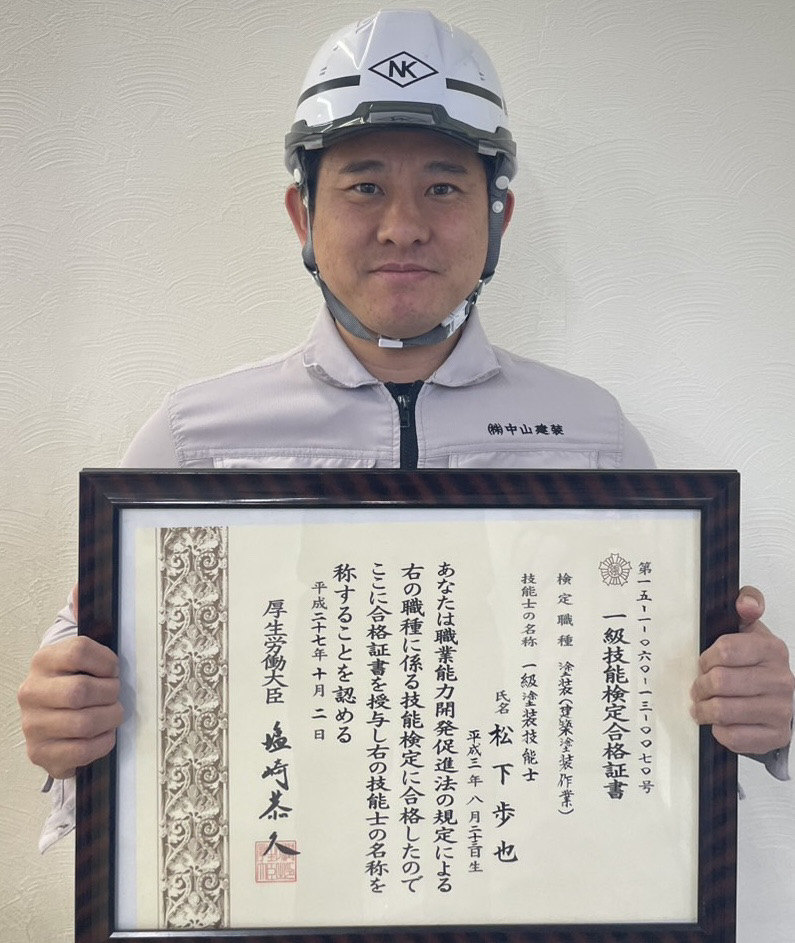 NK
㈱中山建装
第一五-一-〇六〇-一三-〇〇七〇号
一級技能検定合格証書
検定職種 塗装(建築塗装作業)
技能士の名称 一級塗装技能士
氏名 松下歩也
平成三年八月二十三日生
あなたは職業能力開発促進法の規定による
右の職種に係る技能検定に合格したので
ここに合格証書を授与し右の技能士の名称を
称することを認める
平成二十七年十月二日
厚生労働大臣 塩崎恭久